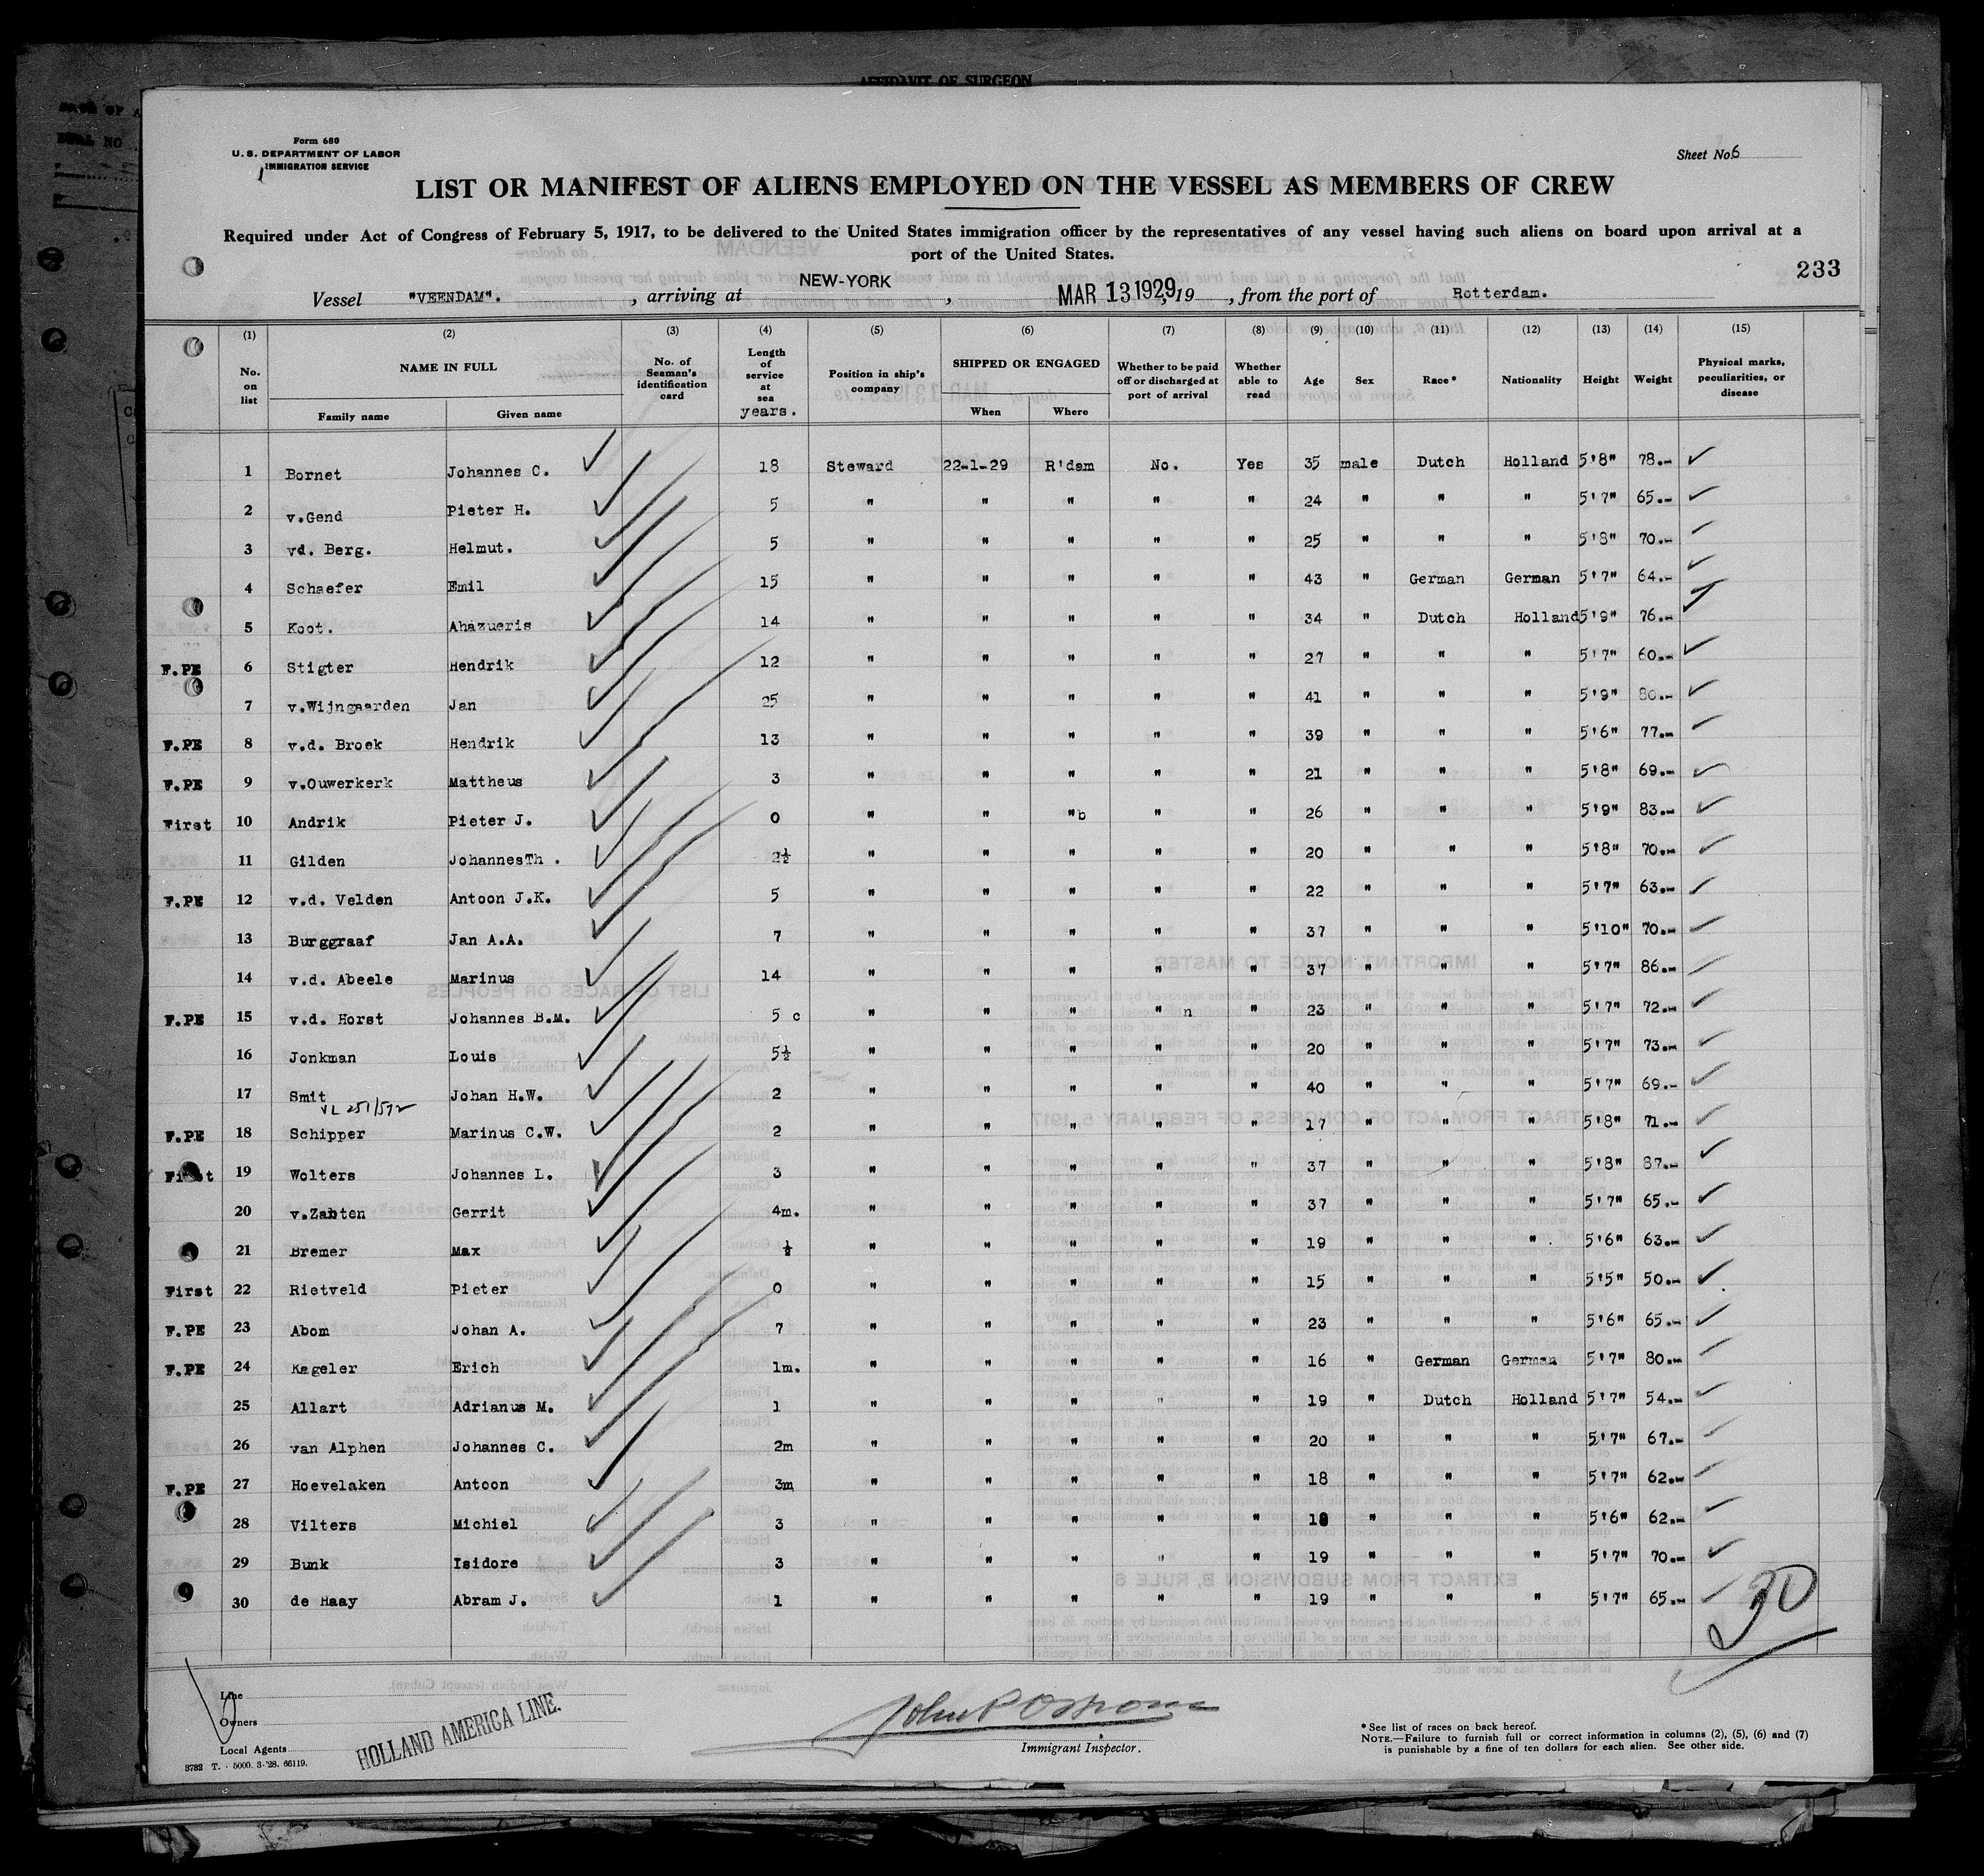 AFFIDAVIT OF SURGEON
Form 680
U. S. DEPARTMENT OF LABOR
IMMIGRATION SERVICE
Sheet No. 6
LIST OR MANIFEST OF ALIENS EMPLOYED ON THE VESSEL AS MEMBERS OF CREW
Required under Act of Congress of February 5, 1917, to be delivered to the United States immigration officer by the representatives of any vessel having such aliens on board upon arrival at a
port of the United States.
233
Vessel "VEENDAM". , arriving at NEW-YORK , MAR 13 1929, 19 , from the port of Rotterdam.
(1) (2) (3) (4) (5) (6) (7) (8) (9) (10) (11) (12) (13) (14) (15)
No. on list NAME IN FULL Family name Given name No. of Seaman's identification card Length of service at sea years. Position in ship's company SHIPPED OR ENGAGED When Where Whether to be paid off or discharged at port of arrival Whether able to read Age Sex Race* Nationality Height Weight Physical marks, peculiarities, or disease
1 Bornet Johannes C. 18 Steward 22-1-29 R'dam No. Yes 35 male Dutch Holland 5'8" 78.-
2 v.Gend Pieter H. 5 " " " " " 24 " " " 5'7" 65.-
3 vd. Berg. Helmut. 5 " " " " " 25 " " " 5'8" 70.-
4 Schaefer Emil 15 " " " " " 43 " German German 5'7" 64.-
5 Koot. Ahazueris 14 " " " " " 34 " Dutch Holland 5'9" 76.-
F.PE 6 Stigter Hendrik 12 " " " " " 27 " " " 5'7" 60.-
7 v.Wijngaarden Jan 25 " " " " " 41 " " " 5'9" 80.-
F.PE 8 v.d. Broek Hendrik 13 " " " " " 39 " " " 5'6" 77.-
F.PE 9 v.Ouwerkerk Mattheus 3 " " " " " 21 " " " 5'8" 69.-
First 10 Andrik Pieter J. 0 " " "b " " 26 " " " 5'9" 83.-
11 Gilden JohannesTh . 2½ " " " " " 20 " " " 5'8" 70.-
F.PE 12 v.d. Velden Antoon J.K. 5 " " " " " 22 " " " 5'7" 63.-
13 Burggraaf Jan A.A. 7 " " " " " 37 " " " 5'10" 70.-
14 v.d. Abeele Marinus 14 " " " " " 37 " " " 5'7" 86.-
F.PE 15 v.d. Horst Johannes B.M. 5 c " " " " n " 23 " " " 5'7" 72.-
16 Jonkman Louis 5½ " " " " " 20 " " " 5'7" 73.-
17 Smit Johan H.W. 2 " " " " " 40 " " " 5'7" 69.-
VL 251/572
F.PE 18 Schipper Marinus C.W. 2 " " " " " 17 " " " 5'8" 71.-
First 19 Wolters Johannes L. 3 " " " " " 37 " " " 5'8" 87.-
20 v.Zanten Gerrit 4m. " " " " " 37 " " " 5'7" 65.-
21 Bremer Max ½ " " " " " 19 " " " 5'6" 63.-
First 22 Rietveld Pieter 0 " " " " " 15 " " " 5'5" 50.-
F.PE 23 Abom Johan A. 7 " " " " " 23 " " " 5'6" 65.-
F.PE 24 Kageler Erich 1m. " " " " " 16 " German German 5'7" 80.-
25 Allart Adrianus M. 1 " " " " " 19 " Dutch Holland 5'7" 54.-
26 van Alphen Johannes C. 2m " " " " " 20 " " " 5'7" 67.-
F.PE 27 Hoevelaken Antoon 3m " " " " " 18 " " " 5'7" 62.-
28 Vilters Michiel 3 " " " " " 18 " " " 5'6" 62.-
29 Bunk Isidore 3 " " " " " 19 " " " 5'7" 70.-
30 de Haay Abram J. 1 " " " " " 19 " " " 5'7" 65.-
30
Line
Owners
Local Agents
HOLLAND AMERICA LINE.
Immigrant Inspector.
*See list of races on back hereof.
NOTE.—Failure to furnish full or correct information in columns (2), (5), (6) and (7)
is punishable by a fine of ten dollars for each alien. See other side.
3782 T. - 5000. 3-'28. 66119.